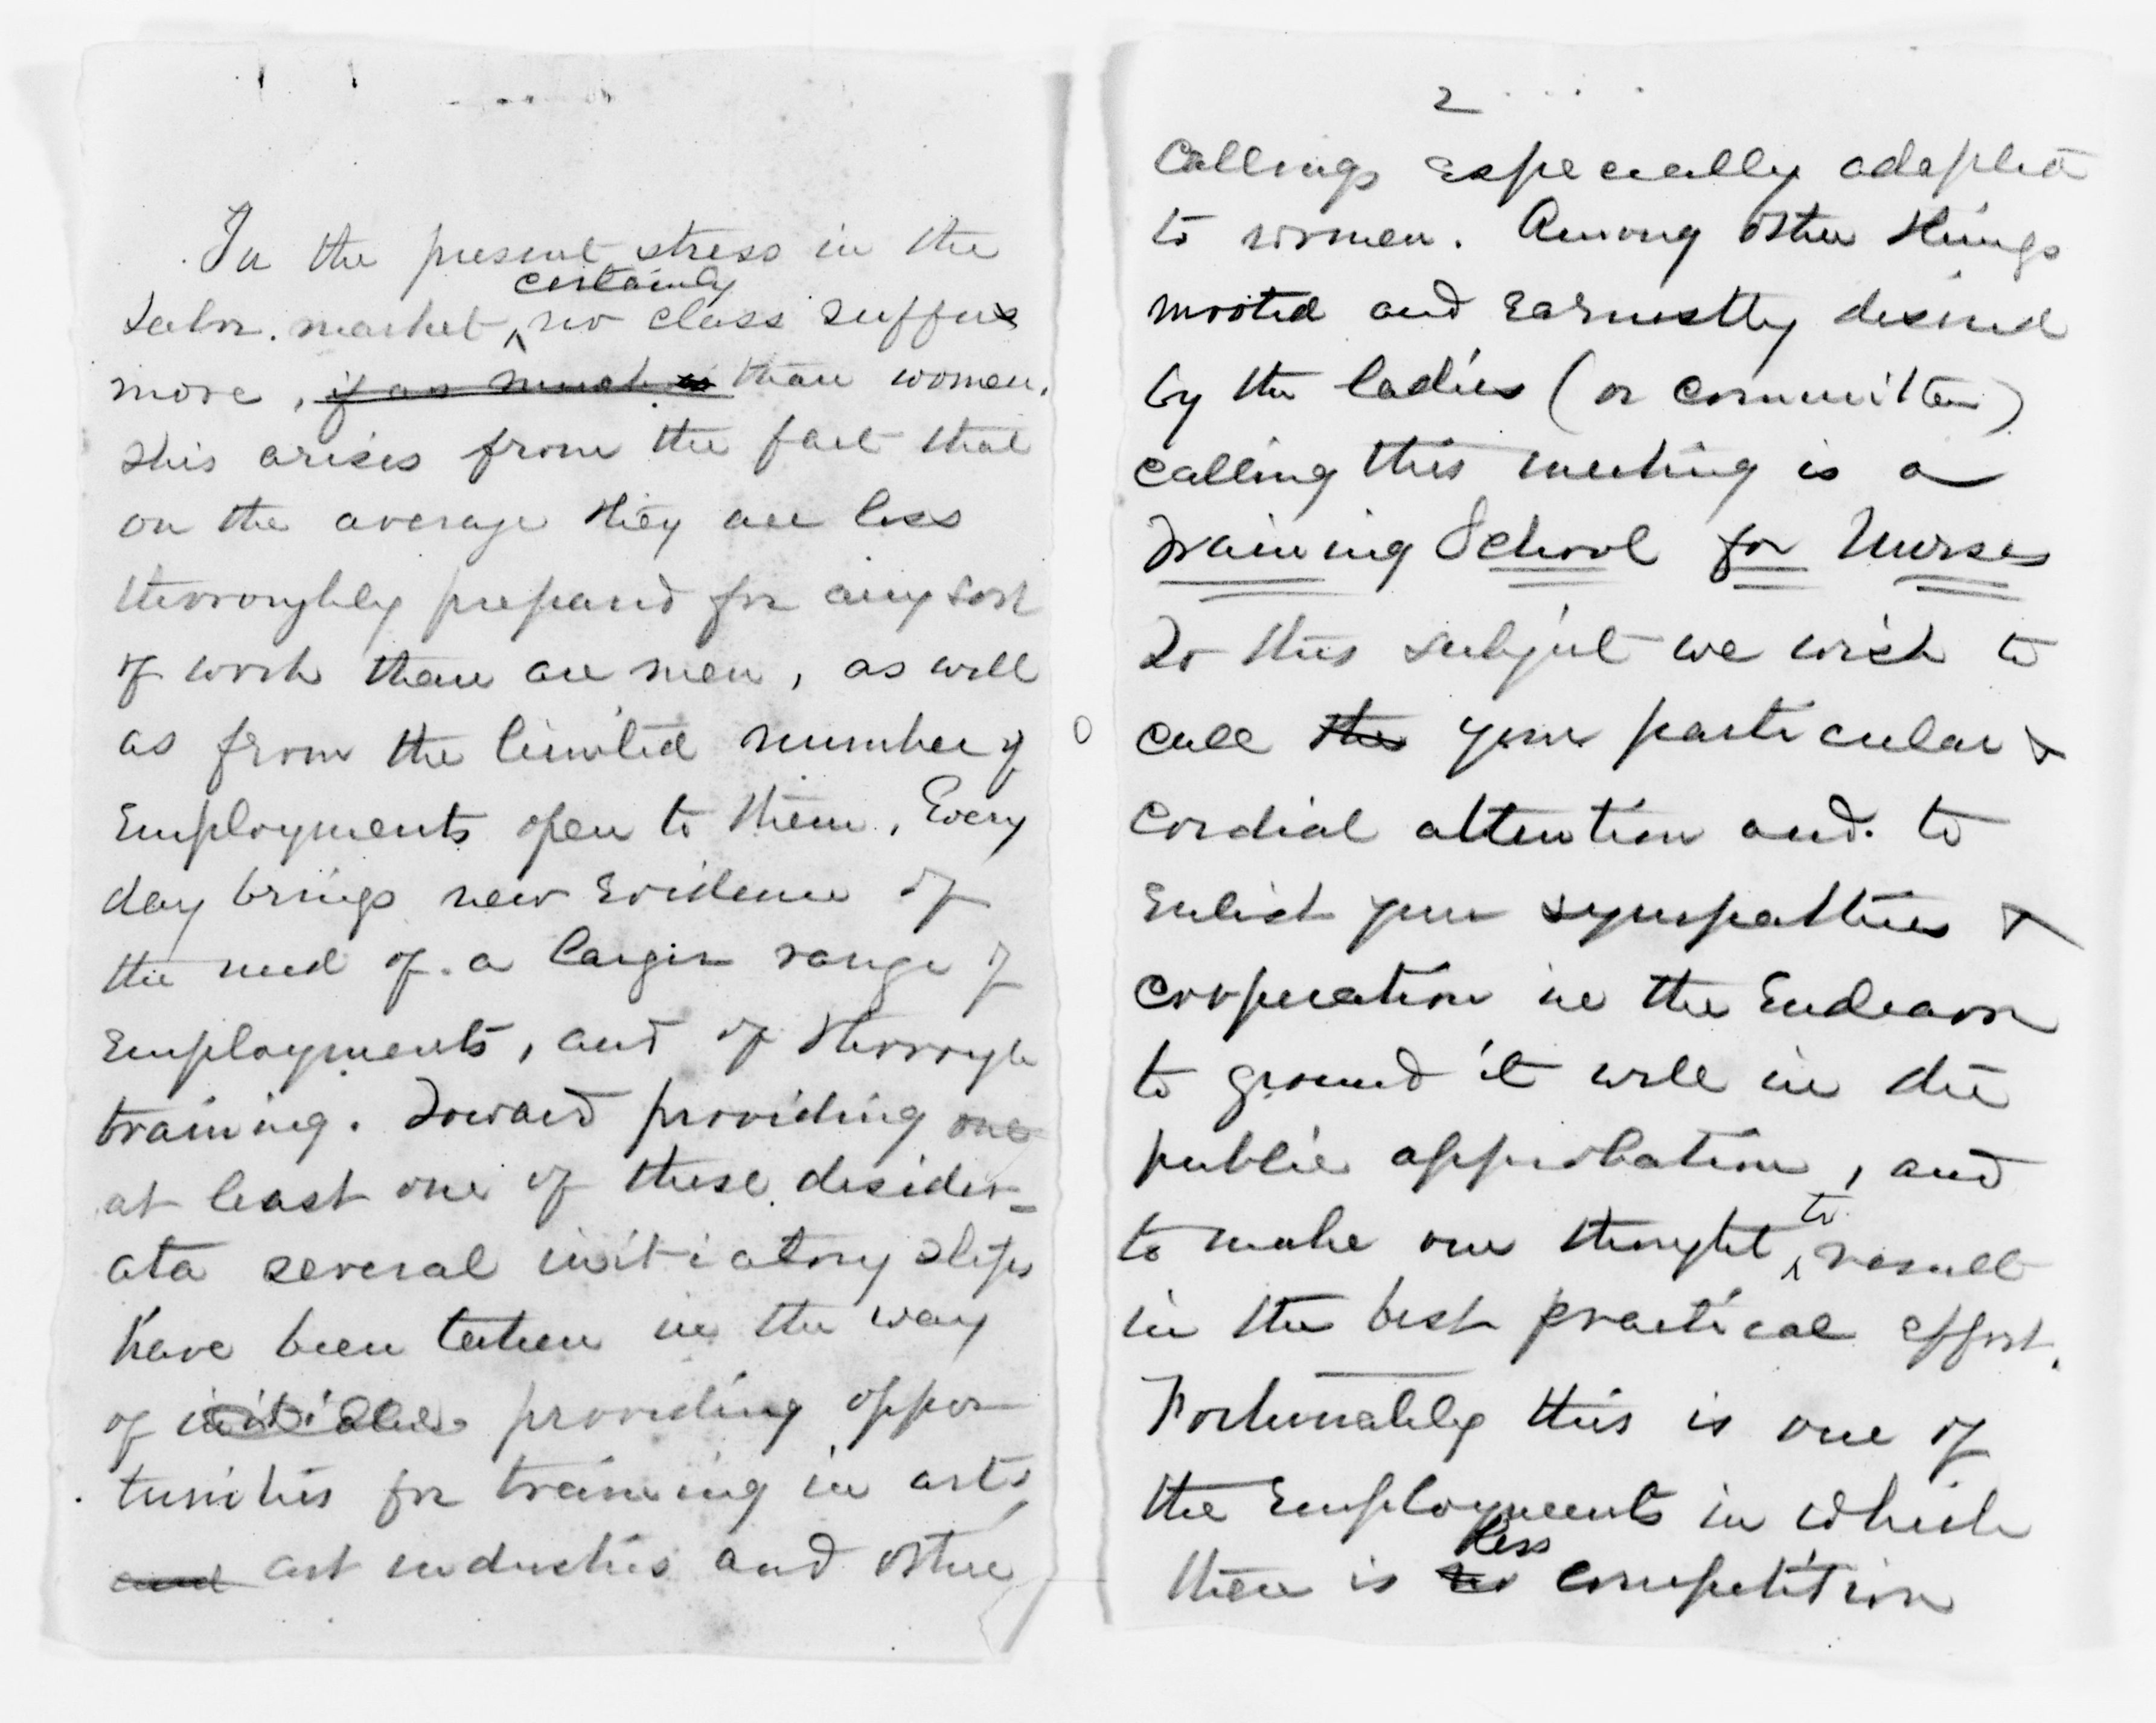 In the present stress in the
certainly
labor market, no class suffers
more, if as much as than women.
This arises from the fact that
on the average they are less
thoroughly prepared for any sort
of work than are men, as well
as from the limited number of
Employments open to them. Every
day brings new Evidence of
the need of a larger range of
Employments, and of thorough
training. Toward providing one
at least one of these desider=
ata several initiatory steps
have been taken in the way
of initiate providing oppor
tunities for training in arts,
and art industries and other
2
Callings Especially adapted
to women. Among other things
mooted and Earnestly desired
by the ladies (or committee)
calling this meeting is a
Training School for Nurses
To this subject we wish to
call the your particular &
cordial attention and to
Enlist your sympathies &
cooperation in the Endeavor
to ground it well in the
public approbation, and
to
to make our thought result
in the best practical effort.
Fortunately this is one of
the Employments in which
less
there is no competition